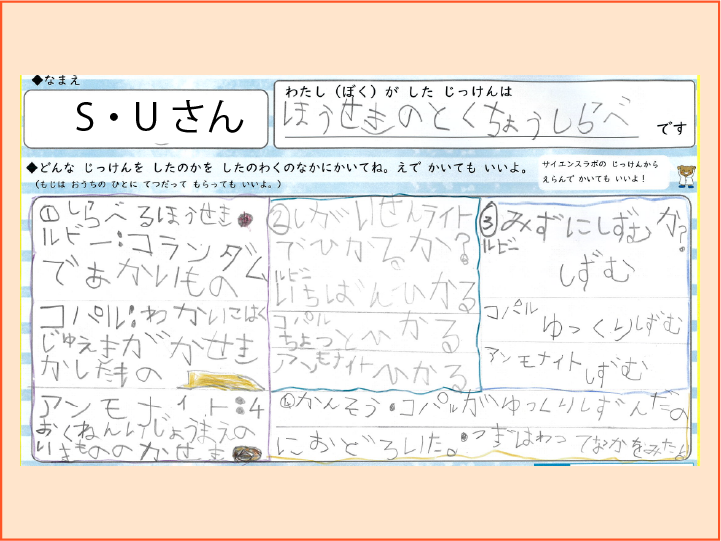 ◆なまえ
S・Uさん
わたし（ぼく）が した じっけんは
ほうせきのとくちょうしらべ
です
◆どんな じっけんを したのかを したのわくのなかにかいてね。えで かいても いいよ。
（もじは おうちの ひとに てつだって もらっても いいよ。）
サイエンスラボの じっけんから
えらんで かいても いいよ！
①しらべるほうせき
ルビー:コランダム
であかいもの
コパル:わかいこはく
じゅえきがかせき
かしたもの
アンモナイト:4
おくねんいじょうまえの
いきもののかせき
②しがいせんライト
でひかるか?
ルビー
いちばんひかる
コパル
ちょっとひかる
アンモナイトひかる
③みずにしずむか?
ルビー
しずむ
コパル
ゆっくりしずむ
アンモナイト
しずむ
④かんそう・コパルがゆっくりしずんだの
におどろいた。・つぎはわってなかをみたい